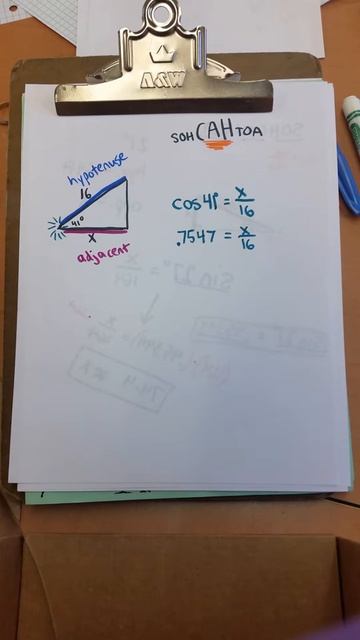 A&W
SOH CAH TOA
hypotenuse
16
41°
x
adjacent
cos 41° = x/16
.7547 = x/16